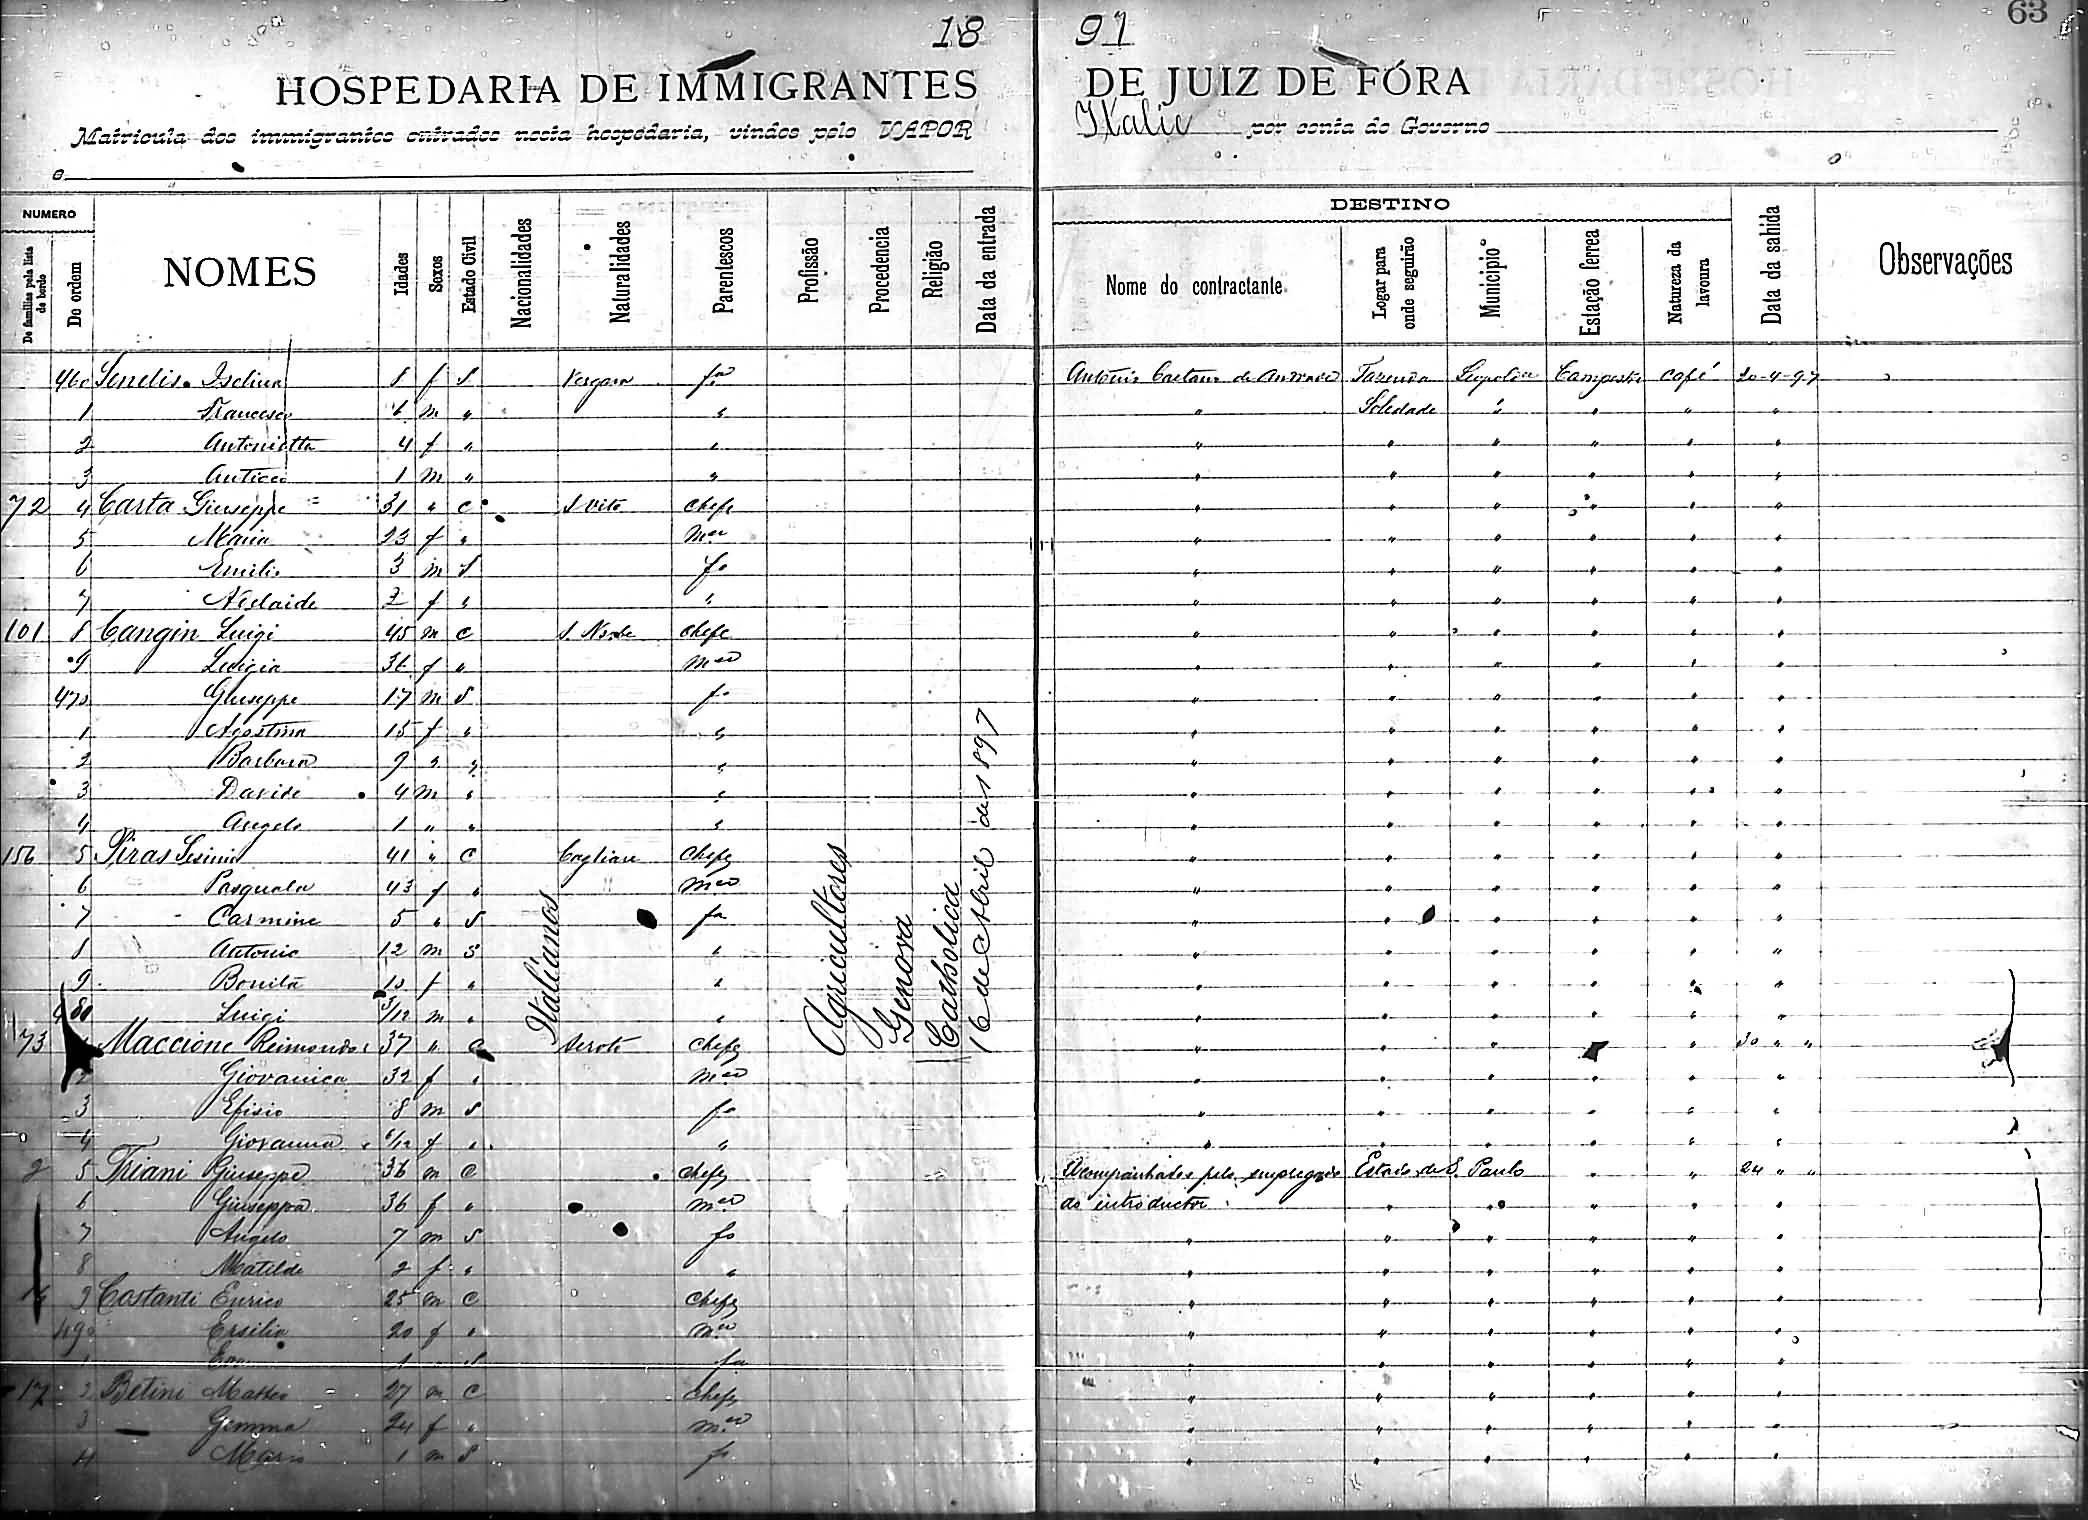 18 97
63
HOSPEDARIA DE IMMIGRANTES DE JUIZ DE FÓRA
Matricula dos immigrantes entrados nesta hospedaria, vindos pelo VAPOR Italie por conta do Governo
o
NUMERO
De familias pela lista de bordo
De ordem
NOMES
Idades
Sexos
Estado Civil
Nacionalidades
Naturalidades
Parentescos
Profissão
Procedencia
Religião
Data da entrada
DESTINO
Nome do contractante
Logar para onde seguirão
Municipio
Estação ferrea
Natureza da lavoura
Data da sahida
Observações
460 f S fa Antonio Caetano de Andrade Fazenda Leopoldina Campestre café 20-4-97
1 Francesco 6 m " " " Soledade " " " "
2 Antonietta 4 f " " " " " " " "
3 1 m " " " " " " " "
72 4 Carta Giuseppe 31 " C S Vito chefe " " " " " "
5 Maria 23 f " mer " " " " " "
6 Emilio 3 m S fo " " " " " "
7 Adelaide 2 f " " " " " " " "
101 8 Cangin Luigi 45 m C chefe " " " " " "
9 Luigia 36 f " mer " " " " " "
470 Giuseppe 17 m S fo " " " " " "
1 Agostina 15 f " " " " " " " "
2 Barbara 9 " " " " " " " " "
3 Davide 4 m " " " " " " " "
4 Angelo 1 " " " " " " " " "
156 5 Piras 41 " C Cagliari chefe " " " " " "
6 Pasquala 43 f " mer " " " " " "
7 Carmine 5 " S fa " " " " " "
8 Antonio 12 m S " " " " " " "
9 Bonita 10 f " " " " " " " "
480 Luigi 3/12 m " " " " " " " "
73 Maccione Reimondo 37 " C chefe " " " " " 30 " "
2 Giovanica 32 f " mer " " " " " "
3 Efisio 8 m S fo " " " " " "
4 Giovanna 6/12 f " " " " " " " "
2 5 Triani Giuseppe 36 m C chefe Acompanhados pelo empregado Estado de S. Paulo " " 24 " "
6 Giuseppa 36 f " mer do introductor " " " " "
7 Angelo 7 m S fo " " " " " "
8 Matilde 2 f " " " " " " " "
9 Costanti Enrico 25 m C chefe " " " " " "
490 Ersilia 20 f " mer " " " " " "
1 S fa " " " " " "
17 2 Betini Matteo 27 m C chefe " " " " " "
3 Gemma 24 f " mer " " " " " "
4 Mario 1 m S fo " " " " " "
Italianos
Agricultores
Genova
Catholica
16 de Abril de 1897